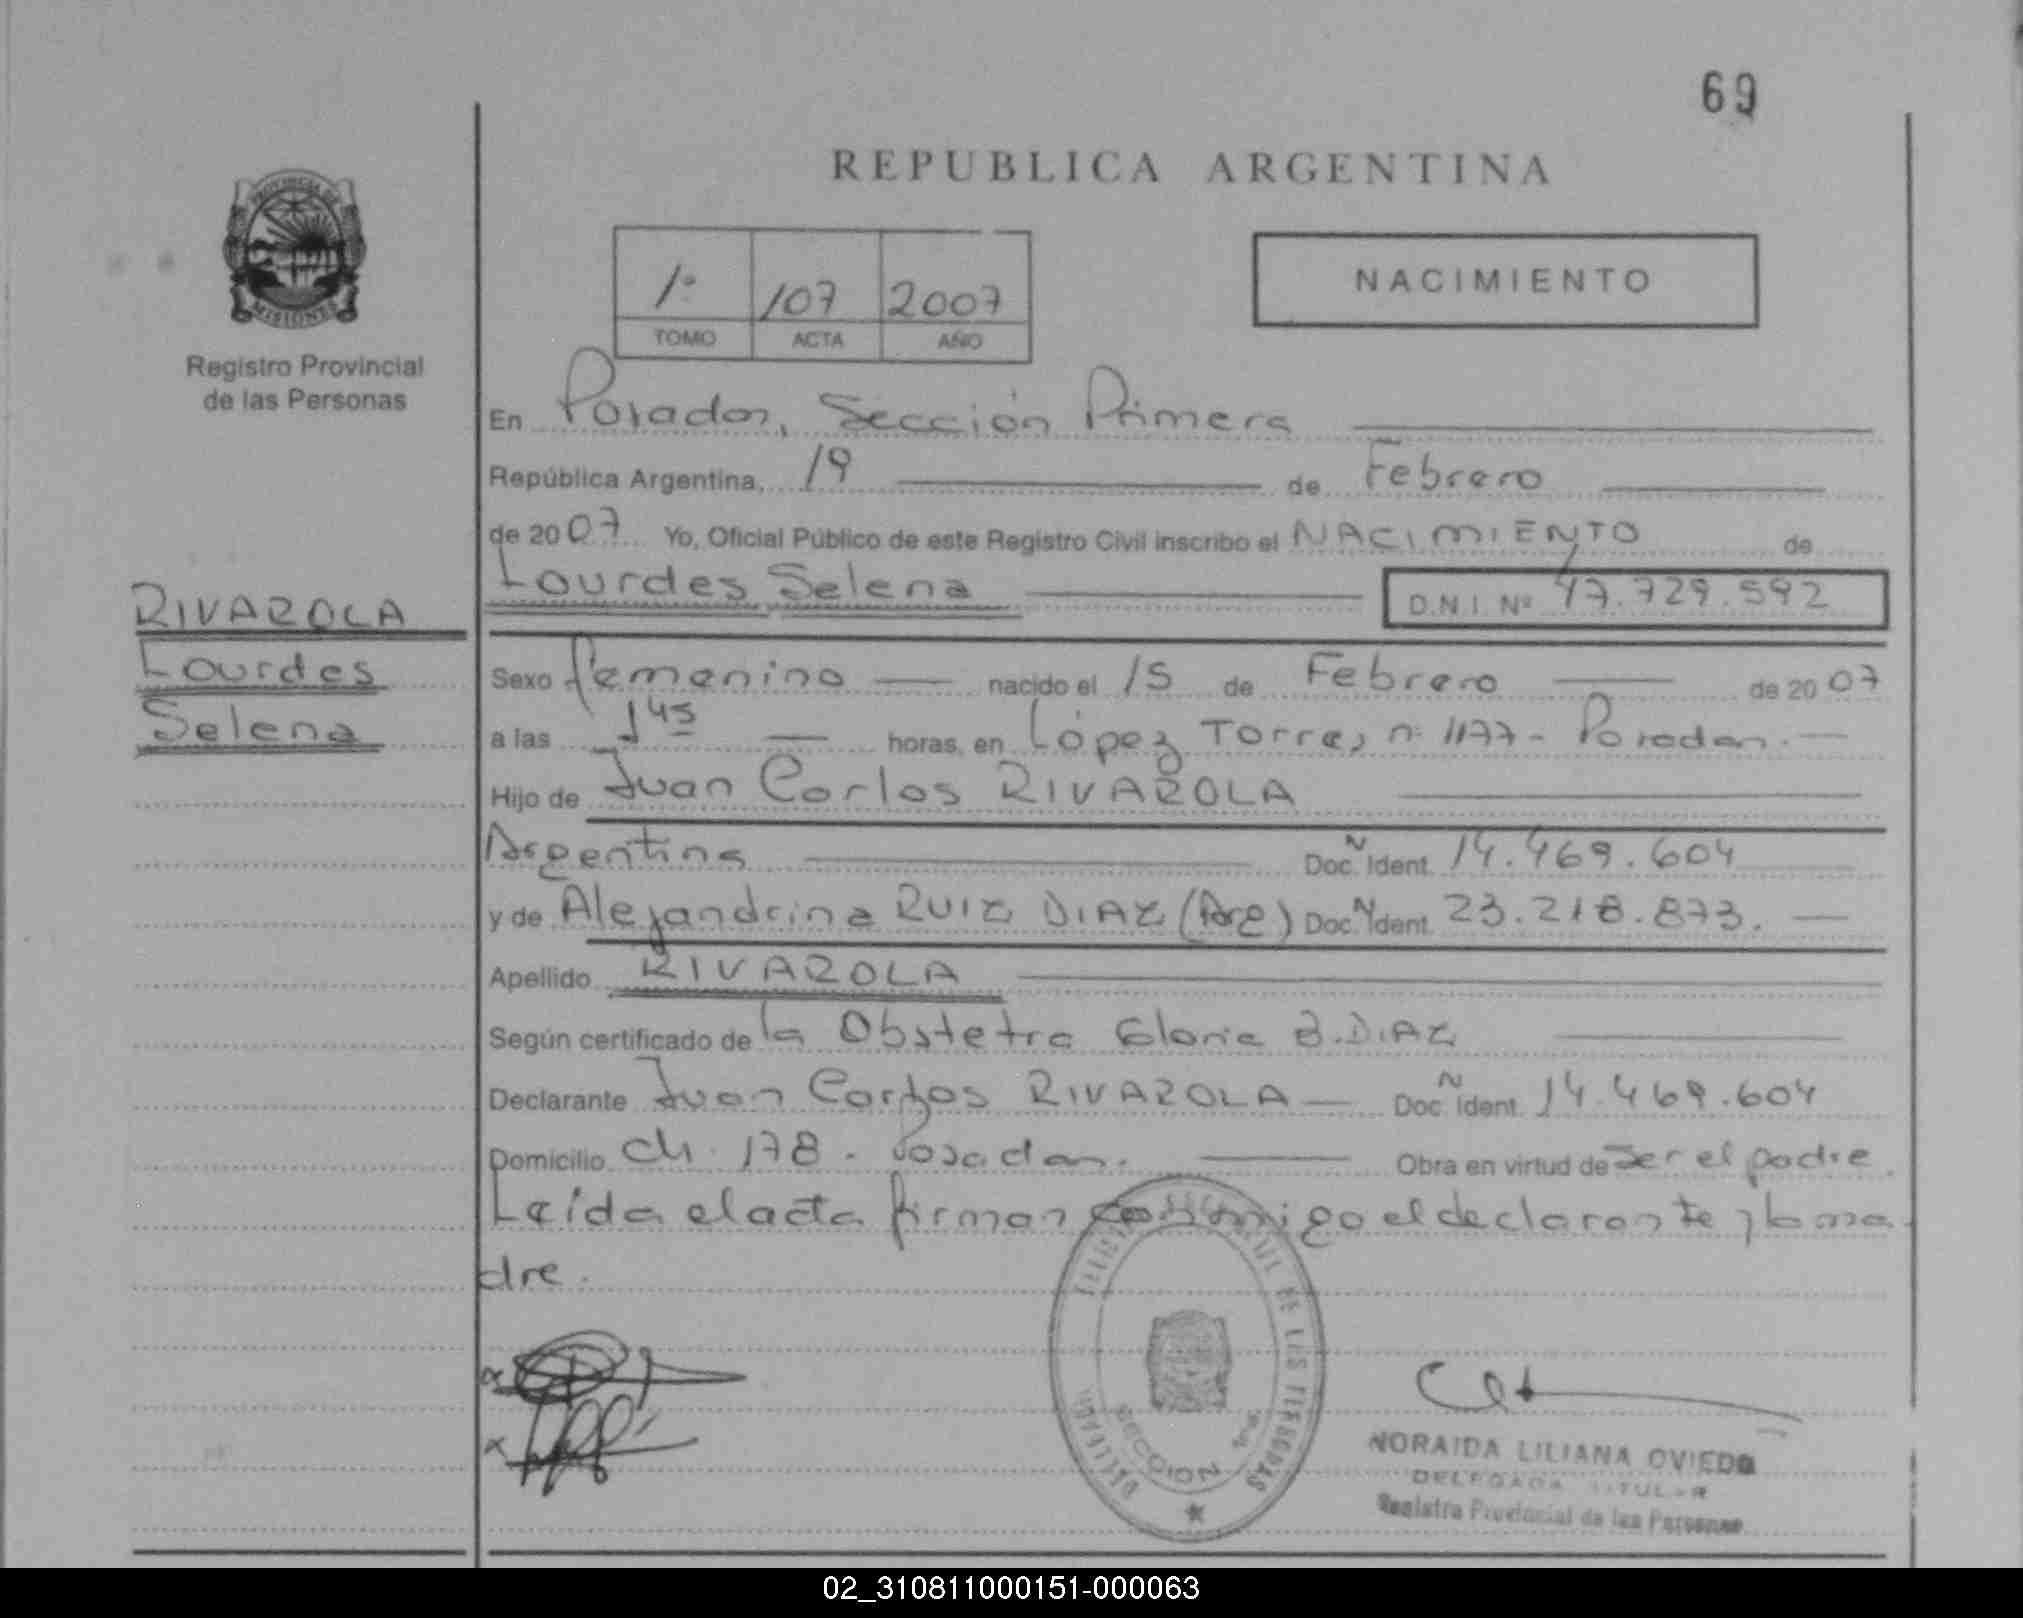 69
REPUBLICA ARGENTINA
PROVINCIA DE
MISIONES
Registro Provincial
de las Personas
1º 107 2007
TOMO ACTA AÑO
NACIMIENTO
En Posadas, Sección Primera
República Argentina, 19 de Febrero
de 2007 Yo, Oficial Público de este Registro Civil inscribo el NACIMIENTO de
Lourdes Selena D.N.I. Nº 47.729.592
RIVAROLA
Lourdes
Selena
Sexo femenino nacido el 15 de Febrero de 2007
a las 1 45 horas, en López Torres nº 1177 - Posadas.
Hijo de Juan Carlos RIVAROLA
Argentina Doc. Ident. 14.469.604
y de Alejandrina RUIZ DIAZ (Arg) Doc. Ident. 23.218.873.
Apellido RIVAROLA
Según certificado de la Obstetra Gloria B. DIAZ
Declarante Juan Carlos RIVAROLA Doc. Ident. 14.469.604
Domicilio Ch. 178. Posadas. Obra en virtud de ser el padre.
Leída el acta firman conmigo el declarante y la ma
dre.
SECCION 1ra.
NORAIDA LILIANA OVIEDO
DELEGADA TITULAR
Registro Provincial de las Personas
02_310811000151-000063